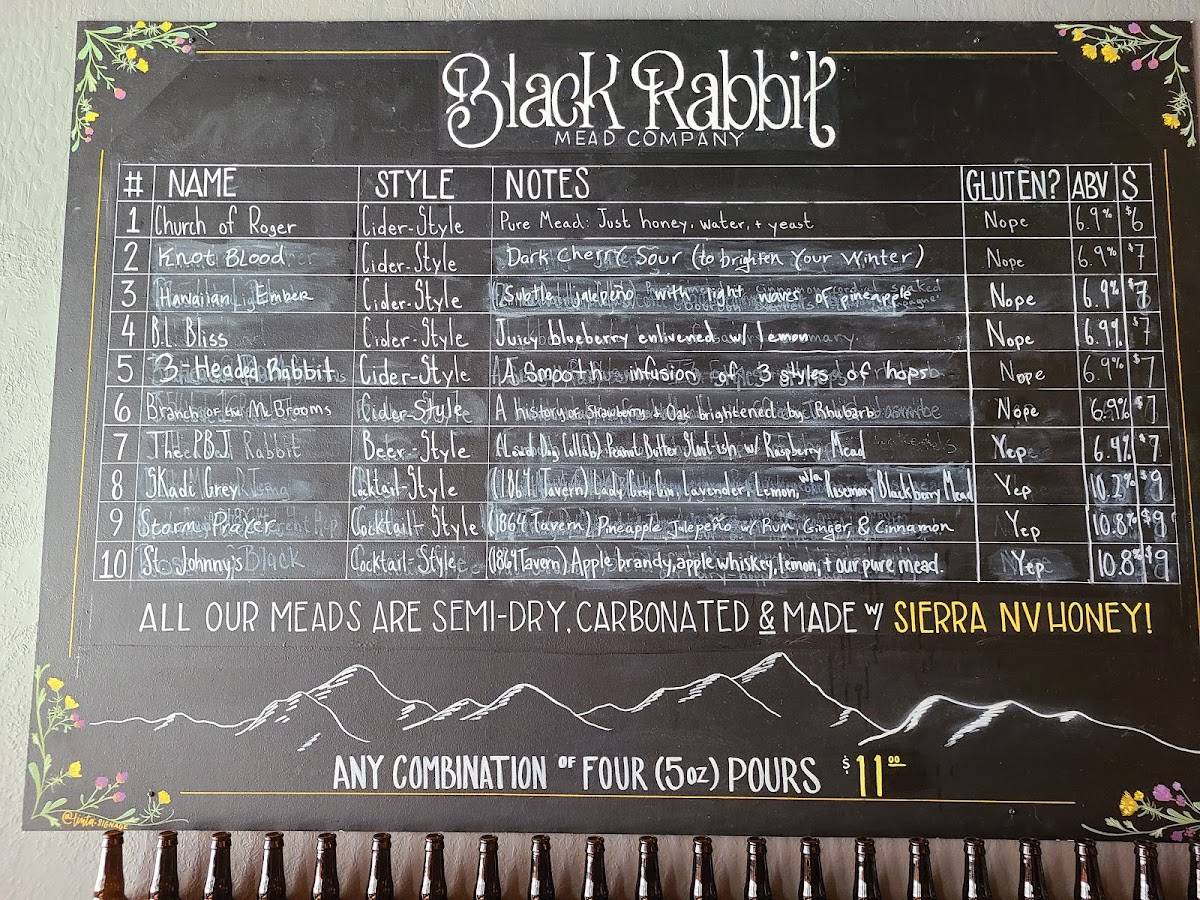 Black Rabbit
MEAD COMPANY
# NAME STYLE NOTES GLUTEN? ABV $
1 Church of Roger Cider-Style Pure Mead: Just honey, water, + yeast Nope 6.9% $6
2 Knot Blood Cider-Style Dark Cherry Sour (to brighten Your Winter) Nope 6.9% $7
3 Hawaiian Ember Cider-Style Subtle jalepeño with light waves of pineapple Nope 6.9% $7
4 B.L. Bliss Cider-Style Juicy blueberry enlivened w/ lemon Nope 6.9% $7
5 3-Headed Rabbit Cider-Style A Smooth infusion of 3 styles of hops Nope 6.9% $7
6 Branch of the Mc Brooms Cider-Style A history of Strawberry & Oak brightened by Rhubarb Nope 6.9% $7
7 Thee PBJ Rabbit Beer-Style Collab) Peanut Butter w/ Raspberry Mead Yep 6.4% $7
8 SKadi Grey Cocktail-Style (1864 Tavern) Lady Grey Gin, Lavender, Lemon, w/a Rosemary Blackberry Mead Yep 10.2% $9
9 Storm Prayer Cocktail-Style (1864 Tavern) Pineapple, Jalepeño w/ Rum, Ginger, & Cinnamon Yep 10.8% $9
10 St. Johnny's Cocktail-Style (1864 Tavern) Apple brandy, apple whiskey, lemon, + our pure mead. Yep 10.8% $9
ALL OUR MEADS ARE SEMI-DRY, CARBONATED & MADE w/ SIERRA NV HONEY!
ANY COMBINATION OF FOUR (5oz) POURS $11.00